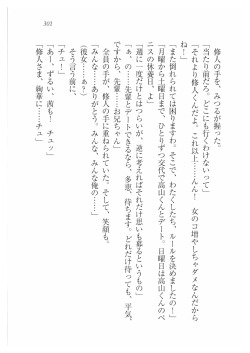 303
修人の手を、みつるが握った。
「当たり前だろ。どこにも行くわけないって」
「それより修人くんだよ。これ以上……んん！　女のコ増やしちゃダメなんだから
ね！」
「また倒れられては困りますわ。そこで、わたくしたち、ルールを決めましたの！」
「月曜から土曜日まで、ひとりずつ交代で高山くんとデート。日曜日は高山くんのペ
ニスの休養日、よ」
「週に一度だけとはつらいが、逆に考えればそれだけ思いも募るというもの」
「ぁ、の……先輩とデートできるなら、多恵、待ちます。どれだけ待っても、平気、
ですから、先輩……お兄ちゃん」
全員の手が、修人の手に重ねられていた。そして、笑顔も。
「みんな……ありがとう。みんな、みんな俺の……」
（彼女……ぁ？）
そう言う前に、
「チュー！」
「あー、ずるい、茜も！　チュッ」
「修人さま、絢華に……チュ」